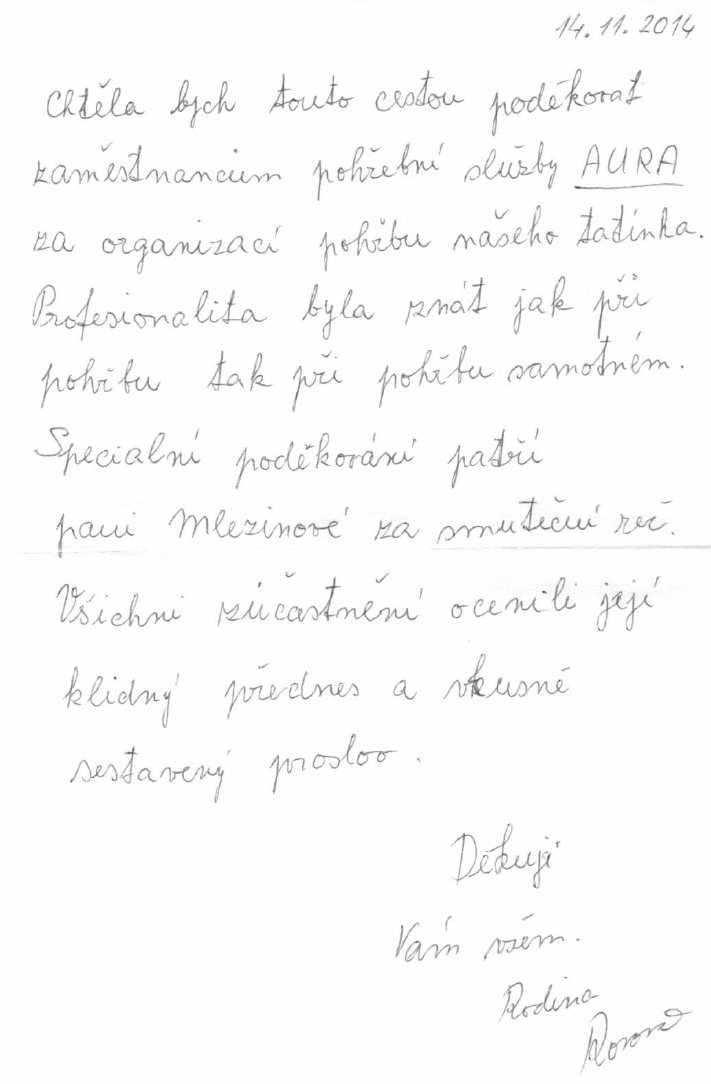 14.11.2014
Chtěla bych touto cestou poděkovat
zaměstnancům pohřební služby AURA
za organizací pohřbu našeho tatínka.
Profesionalita byla znát jak při
pohřbu tak při pohřbu samotném.
Specialní poděkování patří
paní Mlezinové za smuteční řeč.
Všichni zúčastnění ocenili její
klidný přednes a vkusně
sestavený proslov.
Děkuji
Vám všem.
Rodina